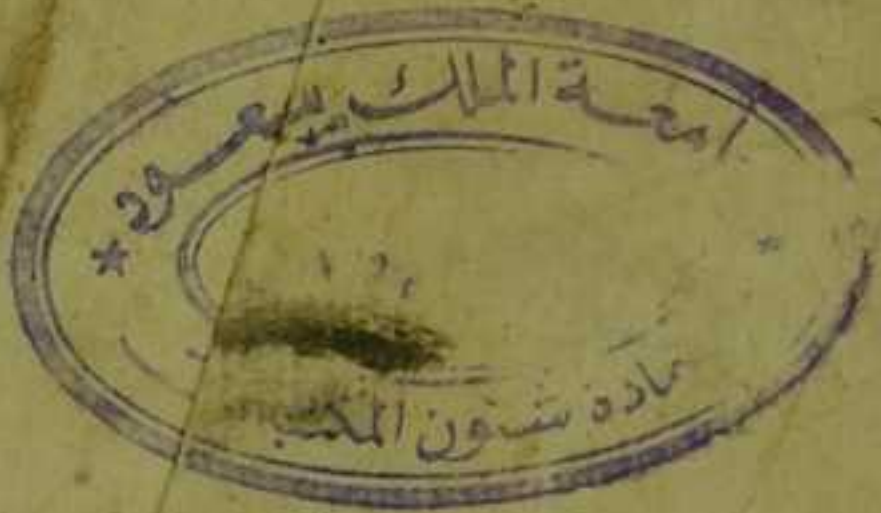 امعة الملك سعود
مادة شئون المكتب